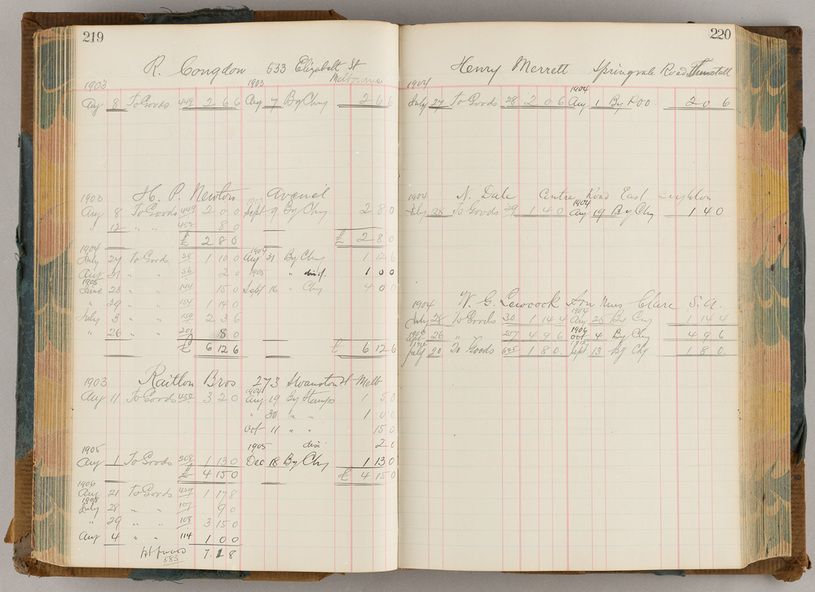 219
R. Congdon 633 Elizabeth St
Melbourne
1903 1903
Aug 8 To Goods 449 2 6 6 Aug 7 By Chq 2 6 6
H. P. Newton Avenel
1903
Aug 8 To Goods 449 2 0 0 Sept 9 By Chq 2 8 0
" 12 " " 8 0
£ 2 8 0 £ 2 8 0
1904 1904
July 27 To Goods 1 10 0 Aug 31 By Chq 1 12 6
Aug 31 " " 2 0 1905 " 1 0 0
1905
June 23 " " 15 0 Sept 16 " Chq 4 0 0
" 29 " " 1 14 0
July 3 " " 2 3 6
" 26 " " 8 0
£ 6 12 6 £ 6 12 6
Railton Bros 273 Swanston St Melb
1903 1904
Aug 11 To Goods 452 3 2 0 Aug 19 By Stamps 1 5 0
" 30 " " 1 0 0
Oct 11 " " 15 0
dis 2 0
1905 1905
Aug 1 To Goods 208 1 13 0 Dec 18 By Chq 1 13 0
£ 4 15 0 £ 4 15 0
1906
Aug 21 To Goods 1 17 8
July 28 " " 107 9 0
" 29 " " 108 3 15 0
Aug 4 " " 114 1 0 0
583 7 1 8
220
Henry Merrett Springvale Road Tunstall
1904 1904
July 27 To Goods 28 2 0 6 Aug 1 By POO 2 0 6
N. Dale Centre Road East Brighton
1904 1904
July 28 To Goods 29 1 4 0 Aug 19 By Chq 1 4 0
W. G. Lewcock & Son Nurs Clare S.A.
1904 1904
July 28 To Goods 30 1 14 4 Aug 25 By Chq 1 14 4
26 " 4 9 6 Oct 4 By Chq 4 9 6
July 20 To Goods 1 8 0 Sept 13 By Chq 1 8 0